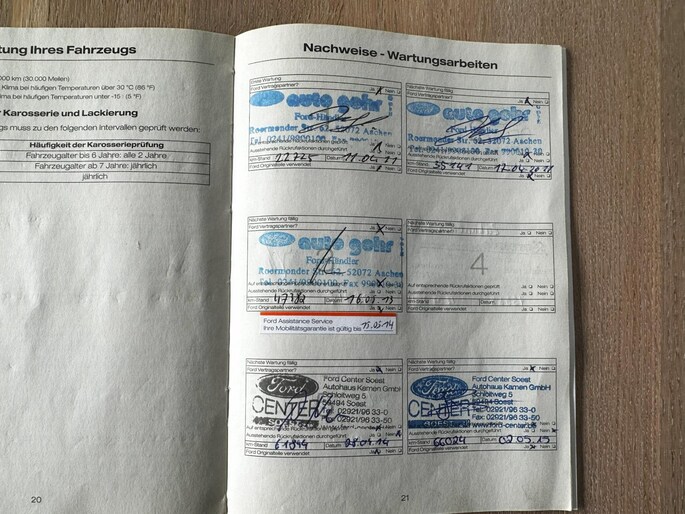 tung Ihres Fahrzeugs
000 km (30.000 Meilen)
Klima bei häufigen Temperaturen über 30 °C (86 °F)
ima bei häufigen Temperaturen unter -15 (5 °F)
r Karosserie und Lackierung
gs muss zu den folgenden Intervallen geprüft werden:
Häufigkeit der Karosserieprüfung
Fahrzeugalter bis 6 Jahre: alle 2 Jahre
Fahrzeugalter ab 7 Jahre: jährlich
jährlich
20
Nachweise - Wartungsarbeiten
Erste Wartung
Ford Vertragspartner? Ja Nein
Ford auto gohr
Ford-Händler
Roermonder Str. 62, 52072 Aachen
Tel. 0241/9900100
Ausstehende Rückrufaktionen durchgeführt Ja Nein
km-Stand Datum 11.04.11
Ford Originalteile verwendet Ja Nein
Nächste Wartung fällig
Ford Vertragspartner? Ja Nein
Ford auto gohr
Ford Händler
Roermonder Str. 62, 52072 Aachen
Ausstehende Rückrufaktionen durchgeführt Ja Nein
km-Stand Datum
Ford Originalteile verwendet Ja Nein
Nächste Wartung fällig
Ford Vertragspartner? Ja Nein
Ford auto gohr
Ford-Händler
Roermonder Str. 62, 52072 Aachen
Tel. 0241/9900100 Fax
Ausstehende Rückrufaktionen durchgeführt Ja Nein
km-Stand Datum 16.05.13
Ford Originalteile verwendet Ja Nein
Ford Assistance Service
Ihre Mobilitätsgarantie ist gültig bis 15.05.14
Nächste Wartung fällig
Ford Vertragspartner? Ja Nein
4
Auf entsprechende Rückrufaktionen geprüft Ja Nein
Ausstehende Rückrufaktionen durchgeführt Ja Nein
km-Stand Datum
Ford Originalteile verwendet Ja Nein
Nächste Wartung fällig
Ford Vertragspartner? Ja Nein
Ford CENTER SOEST
Ford Center Soest
Autohaus Kamen GmbH
Schloitweg 5
59494 Soest
02921/96 33-0
02921/96 33-50
Ausstehende Rückrufaktionen durchgeführt Ja Nein
km-Stand 61844 Datum 28.04.14
Ford Originalteile verwendet Ja Nein
Nächste Wartung fällig
Ford Vertragspartner? Ja Nein
Ford CENTER SOEST
Ford Center Soest
Autohaus Kamen GmbH
Schloitweg 5
59494 Soest
Tel: 02921/96 33-0
Fax: 02921/96 33-50
www.ford-center.de
Ausstehende Rückrufaktionen durchgeführt Ja Nein
km-Stand 66024 Datum 02.05.15
Ford Originalteile verwendet Ja Nein
21